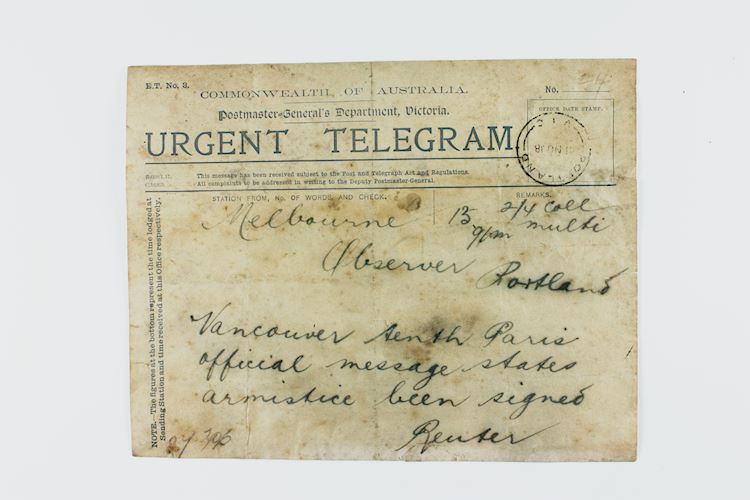 E.T. No. 3.
COMMONWEALTH OF AUSTRALIA.
No. 24
Postmaster-General's Department, Victoria.
OFFICE DATE STAMP.
URGENT TELEGRAM
VIC
PORTLAND
This message has been received subject to the Post and Telegraph Act and Regulations.
All complaints to be addressed in writing to the Deputy Postmaster-General.
STATION FROM, No. OF WORDS, AND CHECK.
REMARKS.
Melbourne 13 2/4 coll
9pm multi
Observer Portland
Vancouver tenth Paris
official message states
armistice been signed
Reuter
NOTE.—The figures at the bottom represent the time lodged at
Sending Station and time received at this Office respectively.